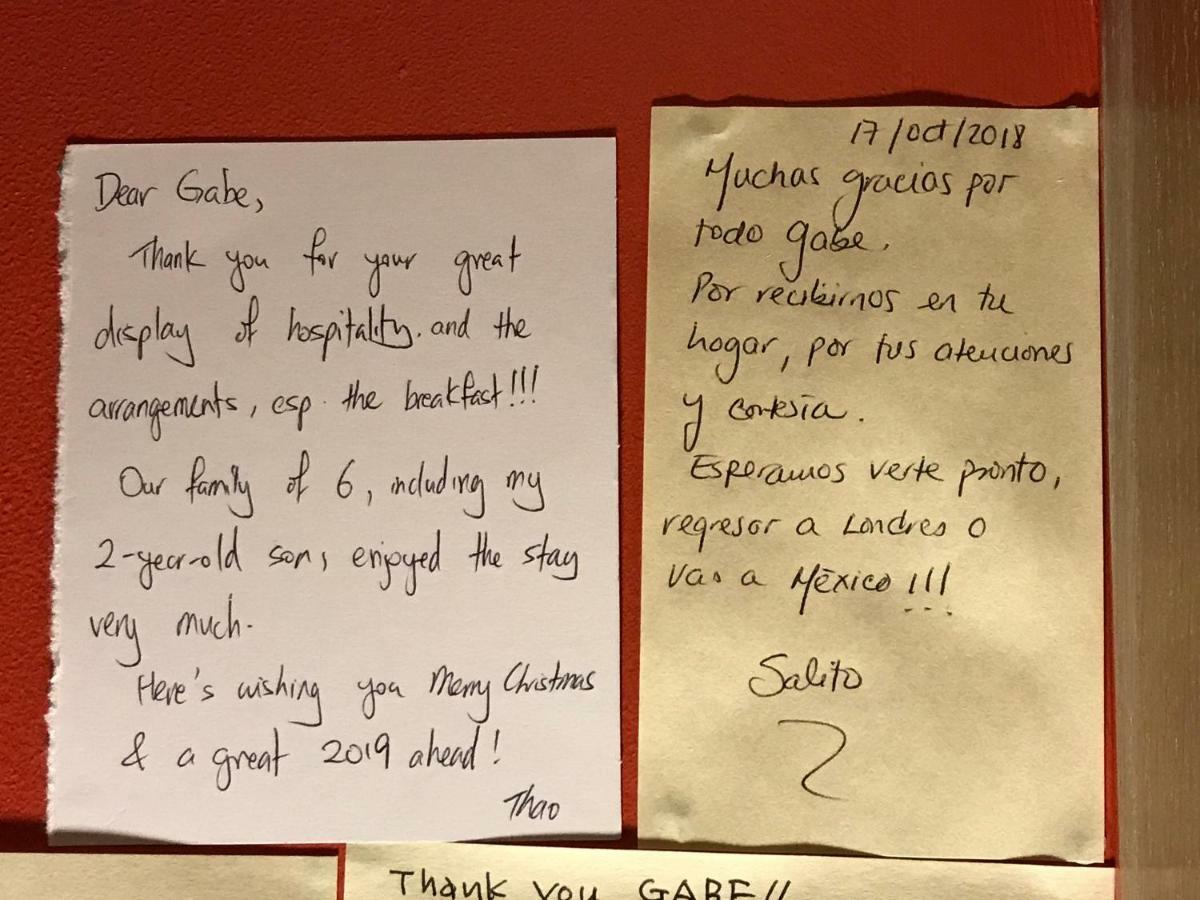 Dear Gabe,
Thank you for your great
display of hospitality. and the
arrangements, esp. the breakfast!!!
Our family of 6, including my
2-year-old son, enjoyed the stay
very much.
Here's wishing you Merry Christmas
& a great 2019 ahead!
Thao
17/oct/2018
Muchas gracias por
todo gabe.
Por recibirnos en tu
hogar, por tus atenciones
y cortesía.
Esperamos verte pronto,
regresar a Londres o
vas a México!!!
Salito
Thank you GABE!!